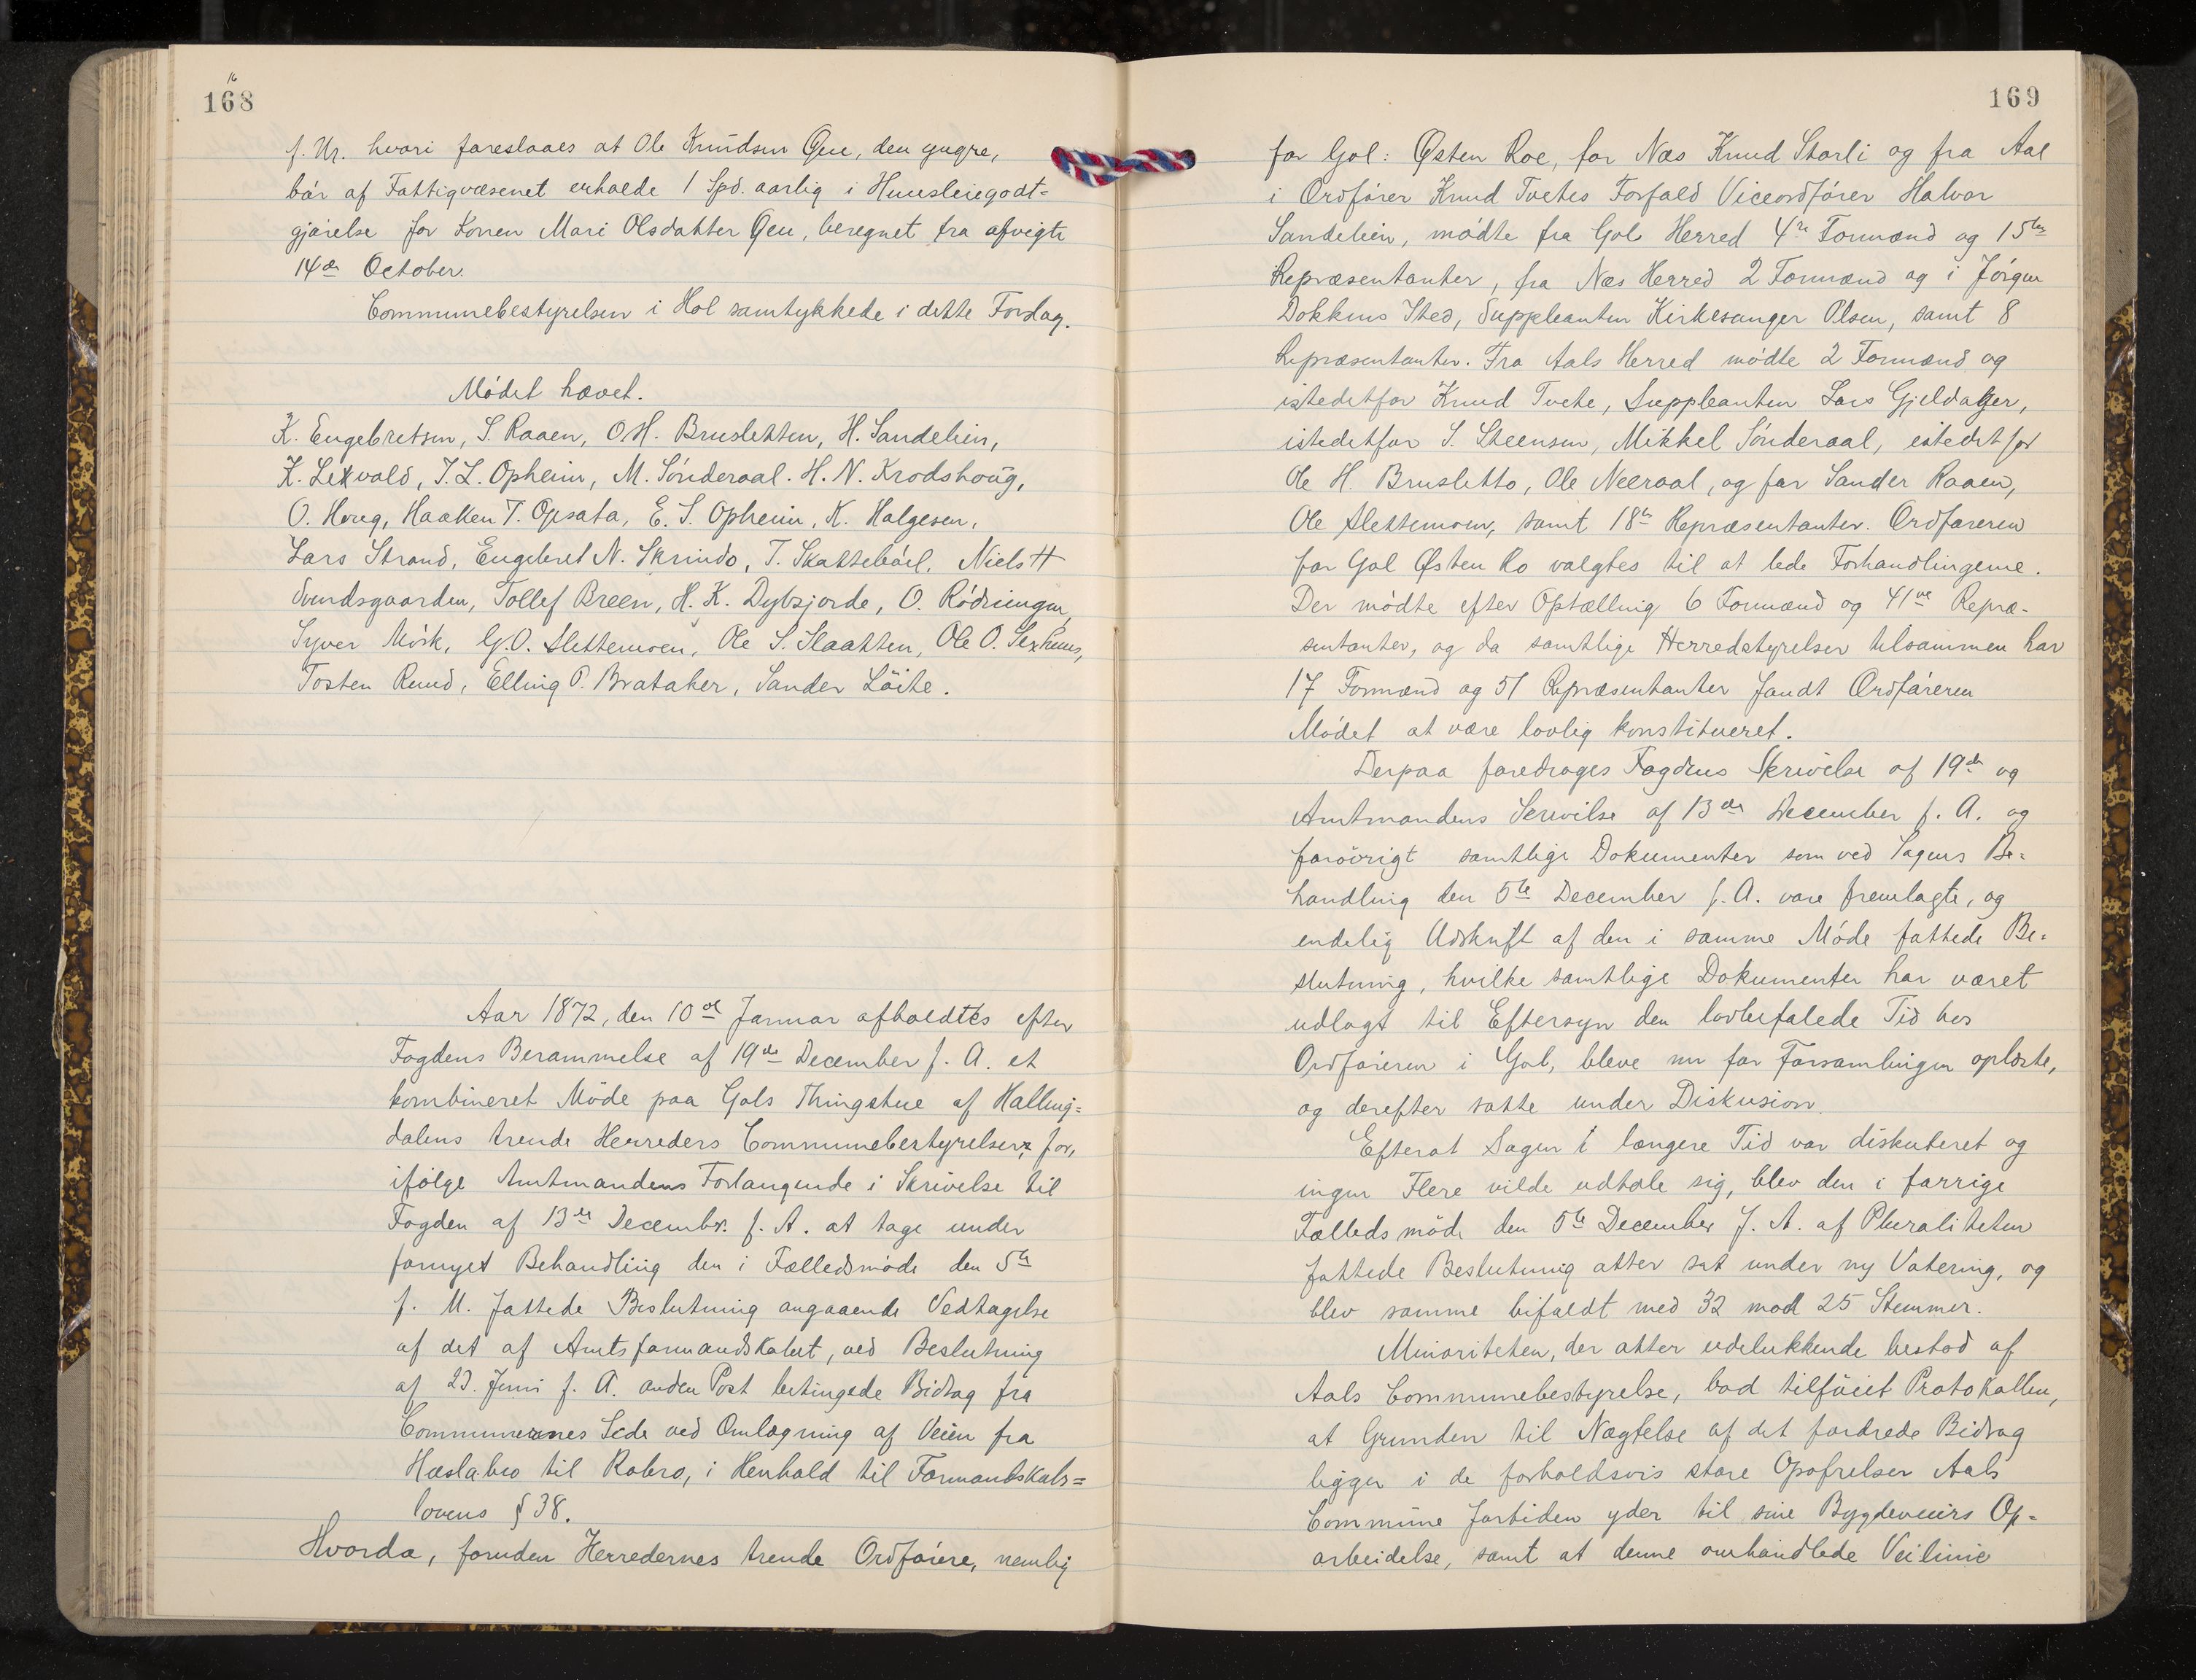 16
168
f. Nr. hvori foreslaaes at Ole Knudsen Gue, den yngre,
bør af Fattigvæsenet erholde 1 Spd. aarlig i Huusleiegodt=
gjørelse for Konen Mari Olsdatter Gue, beregnet fra afvigte
14de October.
Communebestyrelsen i Hol samtykkede i dette Forslag.
Mødet hævet.
K. Engebretsen, S. Raaen, O.H. Brusletten, H. Sandelien,
K. Lexvold, T. L. Opheim, M. Sønderaal. H. N. Krodshoug,
O. Houg, Haaken T. Opsata, E. S. Opheim, K. Halgesen,
Lars Strand, Engebret N. Skrindo, T. Skattebøel, Niels H
Svendsgaarden, Tollef Breen, H. K. Dybsjorde, O. Rødningen,
Syver Mørk, G. O. Slettemoen, Ole S. Slaatten, Ole O. Sexhuus,
Tosten Ruud, Elling P. Brataker, Sander Löite.
Aar 1872, den 10de Januar afholdtes efter
Fogdens Berammelse af 19de December f. A. et
kombineret Møde paa Gols Thingstue af Halling=
dalens trende Herreders Communebestyrelser, for,
ifølge Amtmandens Forlangende i Skrivelse til
Fogden af 13de Decembr. f. A. at tage under
fornyet Behandling den i Fælledsmøde den 5te
f. M. fattede Beslutning angaaende Vedtagelse
af det af Amtsformandskabet, ved Beslutning
af 23. Juni f. A. anden Post betingede Bidrag fra
Communernes Side ved Omlægning af Veien fra
Hæslabro til Robro, i Henhold til Formandskabs=
lovens § 38.
Hvorda, foruden Herredernes trende Ordførere, nemlig
169
for Gol: Østen Roe, for Næs Knud Storli og fra Aal
i Ordfører Knud Tvetes Forfald Viceordfører Halvor
Sandelien, mødte fra Gol Herred 4re Formænd og 15ten
Repræsentanter, fra Næs Herred 2 Formænd og i Jørgen
Dokkens Sted, Suppleanten Kirkesanger Olsen, samt 8
Repræsentanter. Fra Aals Herred mødte 2 Formænd og
istedetfor Knud Tvete, Suppleanten Lars Gjeldager,
istedetfor S. Steensen, Mikkel Sønderaal, istedetfor
Ole H. Brusletto, Ole Neeraal, og for Sander Raaen,
Ole Slettemoen, samt 18te Repræsentanter. Ordføreren
for Gol Østen Ro valgtes til at lede Forhandlingerne.
Der mødte efter Optælling 6 Formænd og 41ve Repræ-
sentanter, og da samtlige Herredstyrelser tilsammen har
17 Formænd og 51 Repræsentanter fandt Ordføreren
Mødet at være lovlig konstitueret.
Derpaa foredroges Fogdens Skrivelse af 19de og
Amtmandens Skrivelse af 13de December f. A. og
forøvrigt samtlige Dokumenter som ved Sagens Be=
handling den 5te December f. A. vare fremlagte, og
endelig Udskrift af den i samme Møde fattede Be=
slutning, hvilke samtlige Dokumenter har været
udlagt til Eftersyn den lovbefalede Tid hos
Ordføreren i Gol, bleve nu for Forsamlingen oplæste,
og derefter satte under Diskusion.
Efterat Sagen i længere Tid var diskuteret og
ingen Flere vilde udtale sig, blev den i forrige
Fælledsmøde den 5te December f. A. af Pluraliteten
fattede Beslutning atter sat under ny Votering, og
blev samme bifaldt med 32 mod 25 Stemmer.
Minoriteten, der atter udelukkende bestod af
Aals Communebestyrelse, bad tilføiet Protokollen,
at Grunden til Nægtelse af det fordrede Bidrag
ligger i de forholdsvis store Opofrelser Aals
Commune fortiden yder til sine Bygdeveiers Op=
arbeidelse, samt at denne omhandlede Veilinie